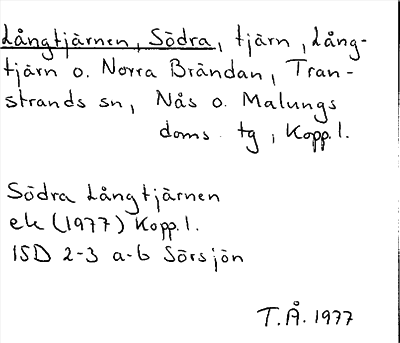 Långtjärnen, Södra, tjärn, Lång-
tjärn o. Norra Brändan, Tran-
strands sn, Nås o. Malungs
doms. tg, Kopp. l.
Södra Långtjärnen
ek (1977) Kopp. l.
15D 2-3 a-b Sörsjön
T.Å. 1977